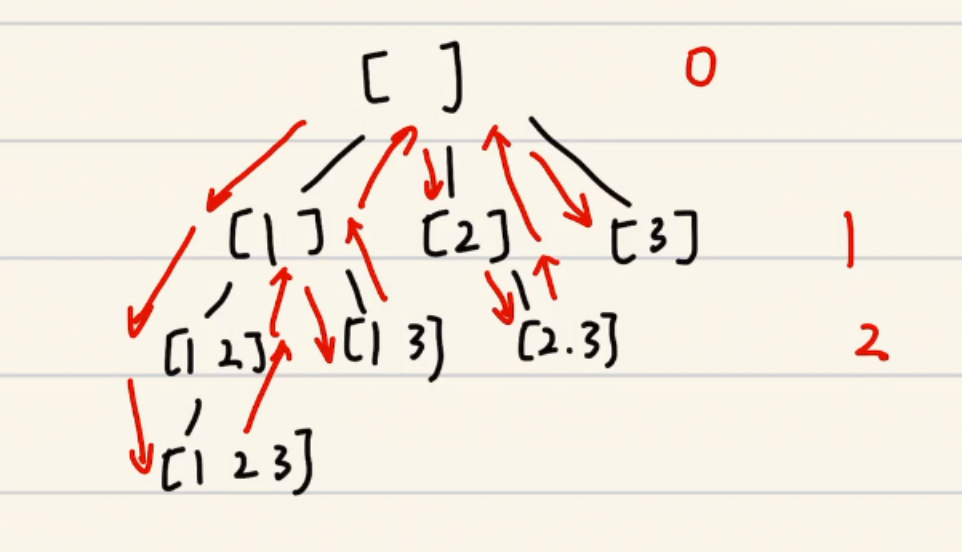 [ ] 0
[1] [2] [3] 1
[1 2] [1 3] [2.3] 2
[1 2 3]